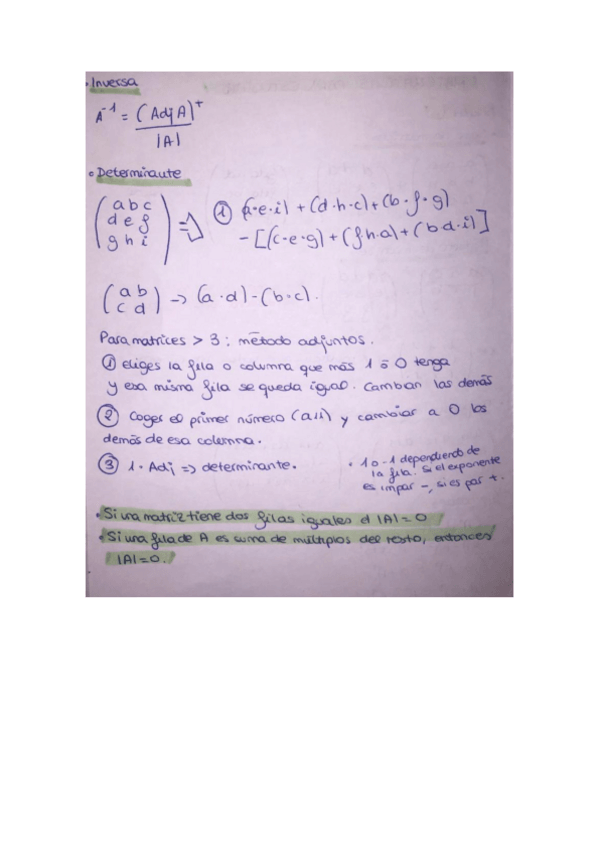 • Inversa
A⁻¹ = (Adj A)ᵗ
|A|
• Determinante
(a b c
d e f
g h i) => ① (a·e·i) + (d·h·c) + (b·f·g)
- [(c·e·g) + (f·h·a) + (b·d·i)]
(a b
c d) -> (a·d) - (b·c).
Para matrices > 3: método adjuntos.
① eliges la fila o columna que más 1 ó 0 tenga
y esa misma fila se queda igual. Cambian las demás
② Coges el primer número (a₁₁) y cambiar a 0 los
demás de esa columna.
③ 1 · Adj => determinante.
• 1 o -1 dependiendo de
la fila. Si el exponente
es impar -, si es par +.
• Si una matriz tiene dos filas iguales d |A| = 0
• Si una fila de A es suma de múltiplos del resto, entonces
|A| = 0.